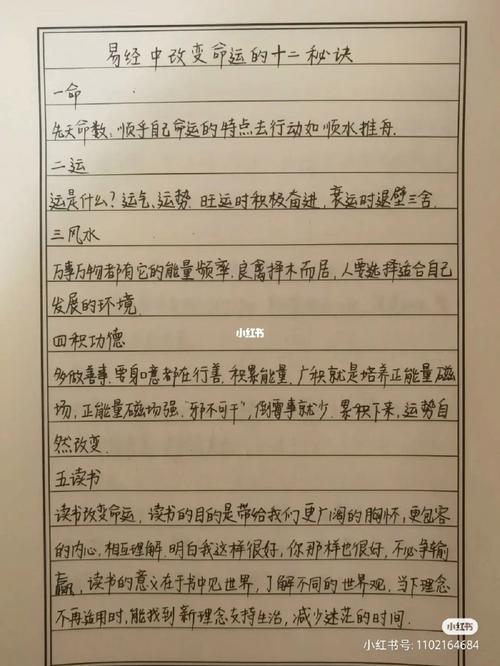 易经中改变命运的十二秘诀
一命
先天命数、顺乎自己命运的特点去行动如顺水推舟.
二运
运是什么?运气、运势. 旺运时积极奋进,衰运时退壁三舍.
三风水
万事万物都有它的能量频率.良禽择木而居,人要选择适合自己
发展的环境.
四积功德
多做善事.要身口意都在行善,积累能量.广积就是培养正能量磁
场,正能量磁场强."邪不可干",倒霉事就少.累积下来,运势自
然改变.
五读书
读书改变命运,读书的目的是带给我们更广阔的胸怀,更包容
的内心,相互理解.明白我这样很好,你那样也很好,不必争输
赢,读书的意义在于书中见世界,了解不同的世界观,当下理念
不再适用时,能找到新理念支持生活,减少迷茫的时间.
小红书
小红书
小红书号: 1102164684